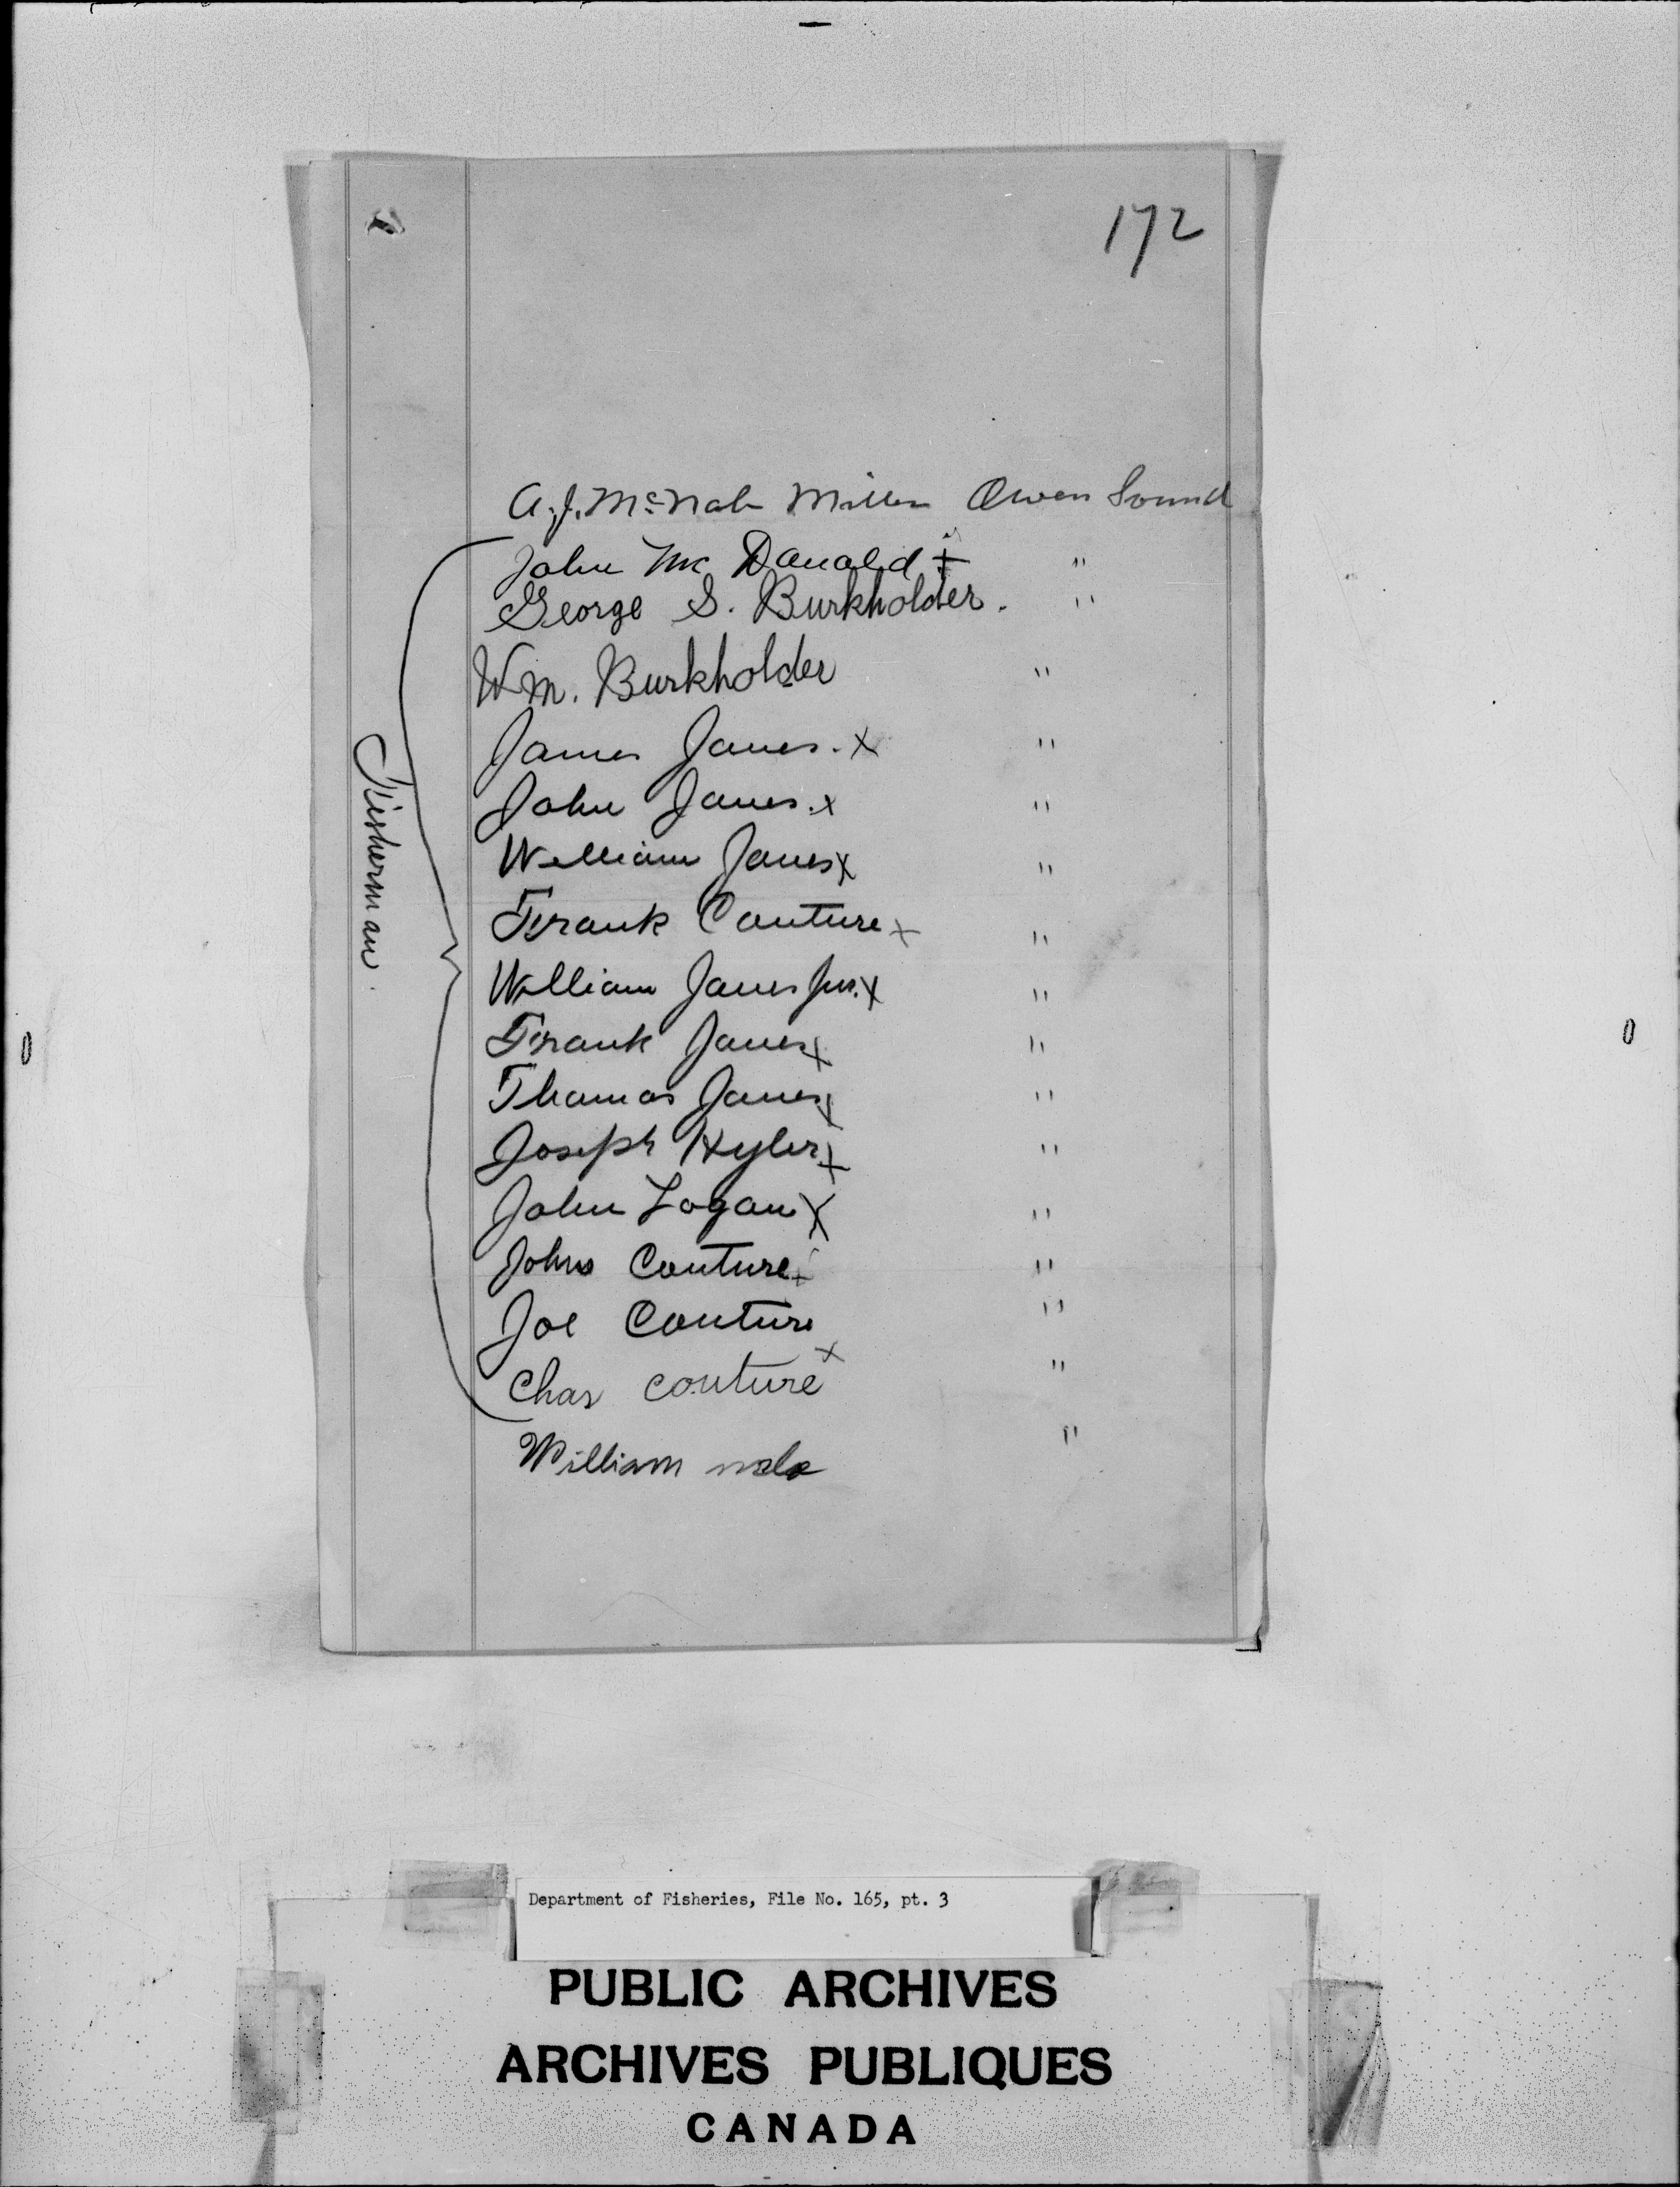 172
A. J. McNab Miller Owen Sound
John Mc Donald + "
George S. Burkholder. "
Wm. Burkholder "
James Jones. x "
John Jones. x "
William Jones x "
Frank Couture x "
William Jones jun. x "
Frank Jones x "
Thomas Jones x "
Joseph Hyler x "
John Logan x "
John Couture x "
Joe Couture "
x
Chas couture "
William "
Fisherman.
Department of Fisheries, File No. 165, pt. 3
PUBLIC ARCHIVES
ARCHIVES PUBLIQUES
CANADA